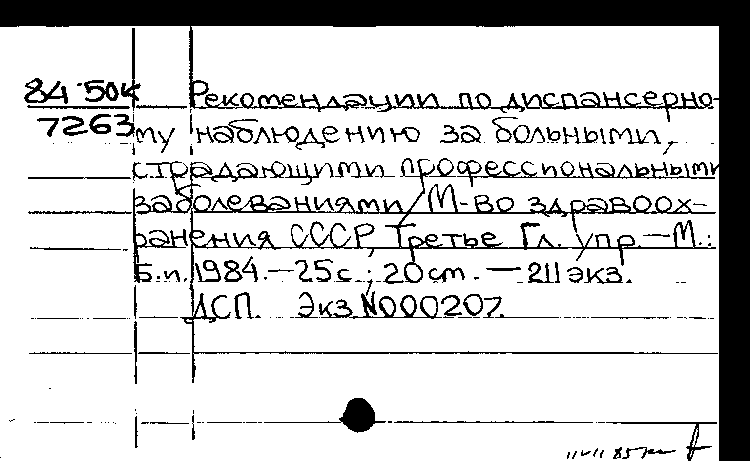 84-50к Рекомендации по диспансерно-
7263 му наблюдению за больными,
страдающими профессиональными
заболеваниями / М-во здравоох-
ранения СССР, Третье Гл. упр. — М.:
Б.и., 1984. — 25 с.; 20 см. — 211 экз.
ДСП. Экз. N000207.